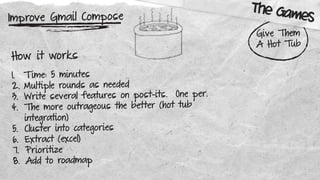 Improve Gmail Compose
The Games
Give Them
A Hot Tub
How it works
1. Time: 5 minutes
2. Multiple rounds as needed
3. Write several features on post-its. One per.
4. The more outrageous the better (hot tub
integration)
5. Cluster into categories
6. Extract (excel)
7. Prioritize
8. Add to roadmap